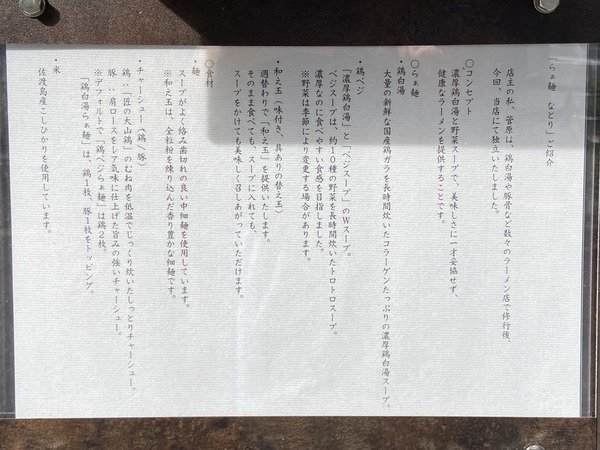 『らぁ麺　なとり』ご紹介
店主の私、菅原は、鶏白湯や豚骨など数々のラーメン店で修行後、
今回、当店にて独立いたしました。
○コンセプト
濃厚鶏白湯と野菜スープで、美味しさに一才妥協せず、
健康なラーメンを提供することです。
○らぁ麺
・鶏白湯
大量の新鮮な国産鶏ガラを長時間炊いたコラーゲンたっぷりの濃厚鶏白湯スープ。
・鶏ベジ
「濃厚鶏白湯」と「ベジスープ」のWスープ。
ベジスープは、約10種の野菜を長時間炊いたトロトロスープ。
濃厚なのに食べやすい食感を目指しました。
※野菜は季節により変更する場合があります。
・和え玉（味付き、具ありの替え玉）
週替わりで「和え玉」を提供いたします。
そのまま食べてもスープに入れても、
スープをかけても美味しく召しあがっていただけます。
○食材
・麺
スープがよく絡み歯切れの良い中細麺を使用しています。
※和え玉は、全粒粉を練り込んだ香り豊かな細麺です。
・チャーシュー（鶏、豚）
鶏：「匠の大山鶏」のむね肉を低温でじっくり炊いたしっとりチャーシュー。
豚：肩ロースをレア気味に仕上げた旨みの強いチャーシュー。
※デフォルトで、「鶏ベジらぁ麺」は鶏2枚。
「鶏白湯らぁ麺」は、鶏1枚、豚1枚をトッピング。
・米
佐渡島産こしひかりを使用しています。